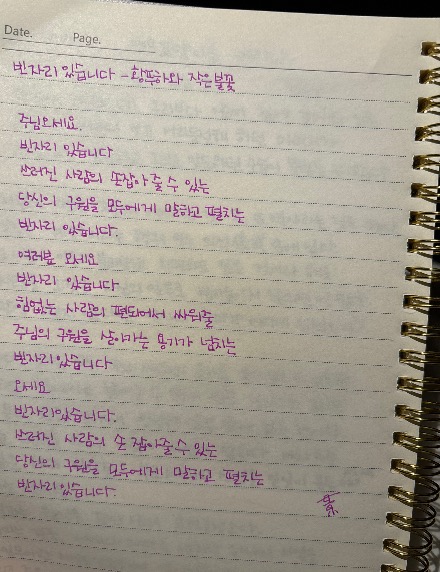 Date. Page.
빈자리 있습니다 - 황푸하와 작은불꽃
주님오세요.
빈자리 있습니다
쓰러진 사람의 손잡아 줄 수 있는
당신의 구원을 모두에게 말하고 펼치는
빈자리 있습니다.
여러분 오세요
빈자리 있습니다
힘없는 사람의 편되어서 싸워줄
주님의 구원을 살아가는 용기가 넘치는
빈자리있습니다
오세요
빈자리있습니다.
쓰러진 사람의 손 잡아줄수 있는
당신의 구원을 모두에게 말하고 펼치는
빈자리있습니다.